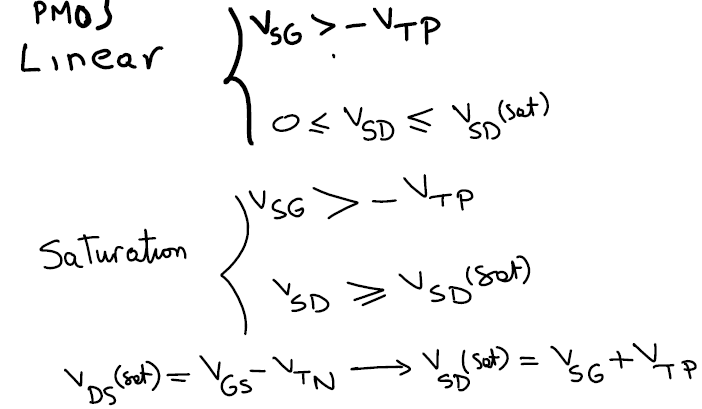 PMOS
Linear
V_SG > -V_TP
0 ≤ V_SD ≤ V_SD(sat)
Saturation
V_SG > -V_TP
V_SD ≥ V_SD(sat)
V_DS(sat) = V_GS - V_TN → V_SD(sat) = V_SG + V_TP